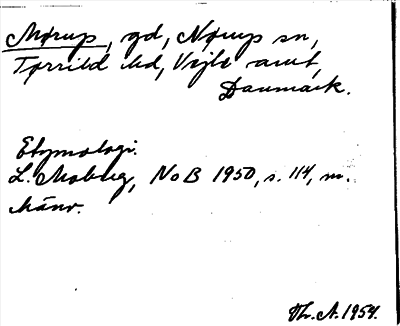 Mørup, gd, Nørup sn,
Tørrild hd, Vejle amt,
Danmark.
Etymologi.
L. Moberg, NoB 1950, s. 114, m.
hänv.
Th. A. 1954.